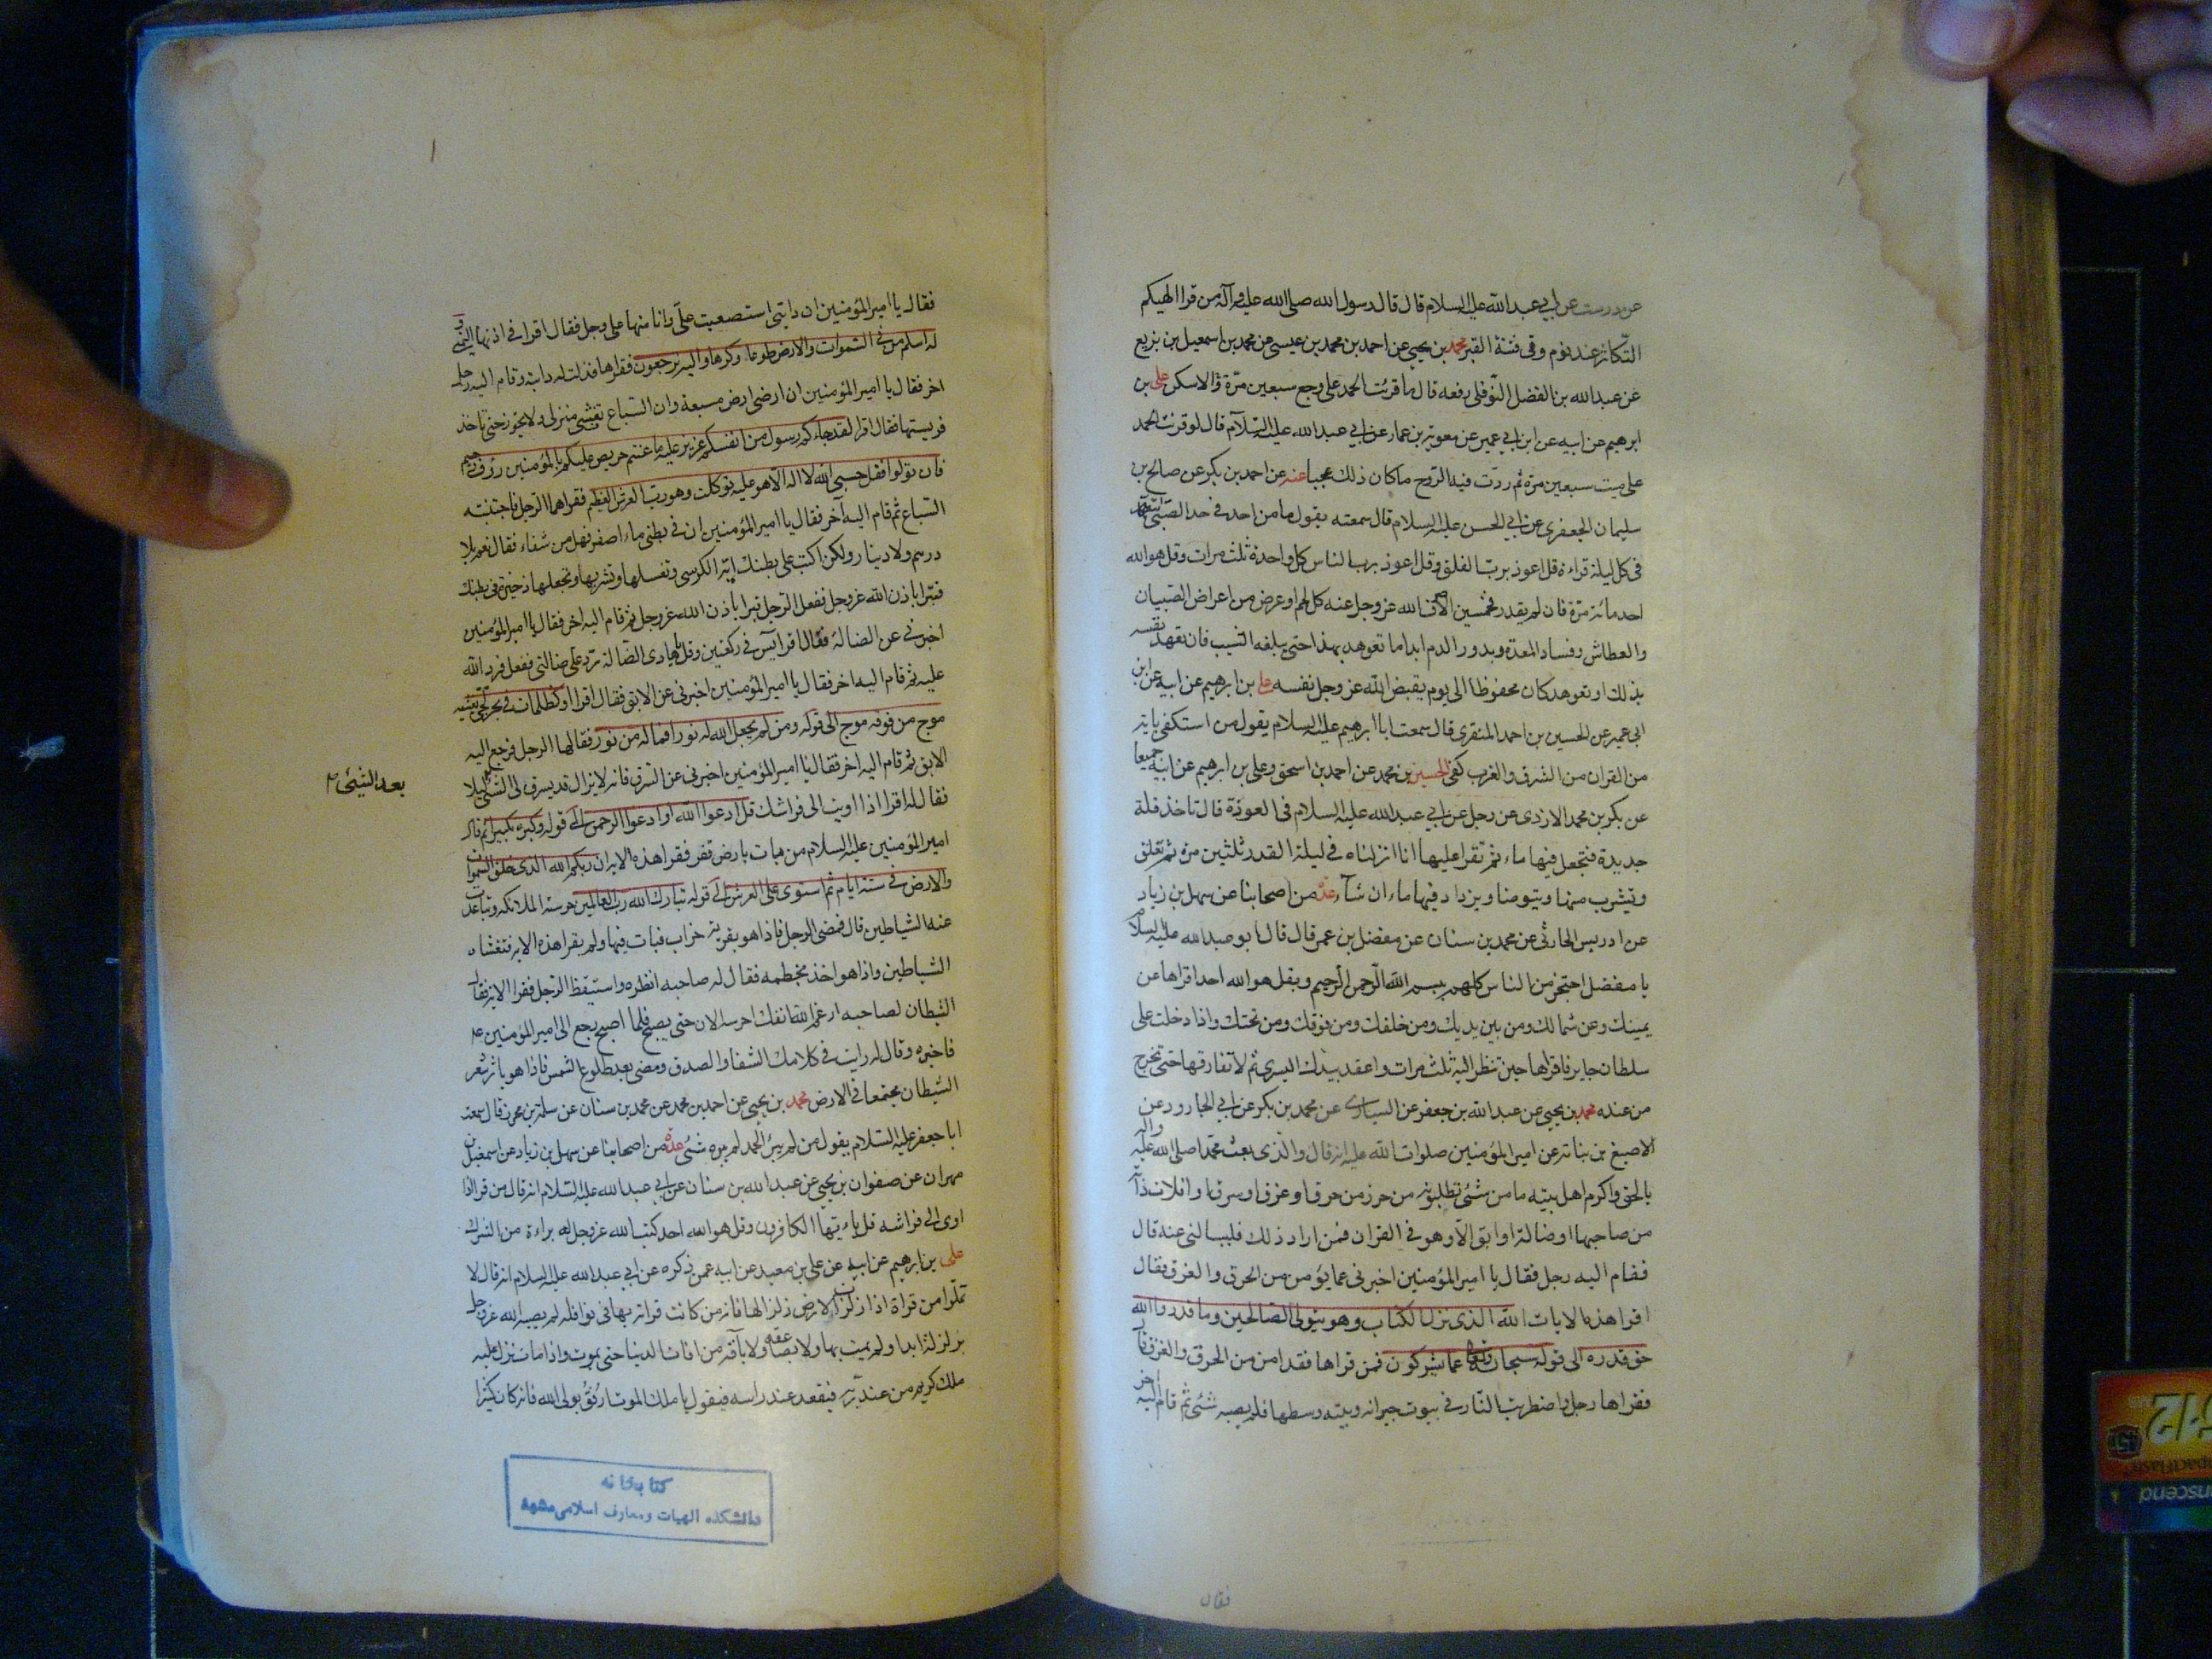 عن درست عن ابي عبدالله عليه السلام قال قال رسول الله صلى الله عليه وآله من قرا الهيكم
التكاثر عند نوم وقى فتنة القبر محمد بن يحيى عن احمد بن محمد بن عيسى عن محمد بن اسمعيل بن بزيع
عن عبدالله بن الفضل النوفلى رفعه قال ما قرئت الحمد على وجع سبعين مرة الا سكن على بن
ابرهيم عن ابيه عن ابن ابي عمير عن معوية بن عمار عن ابي عبدالله عليه السلام قال لو قرئت الحمد
على ميت سبعين مرة ثم ردت فيه الروح ما كان ذلك عجبا عنه عن احمد بن بكر عن صالح بن
سليمان الجعفرى عن ابي الحسن عليه السلام قال سمعته يقول ما من احد فى حد الصبى يتعهد
فى كل ليلة قراءة قل اعوذ برب الفلق وقل اعوذ برب الناس كل واحدة ثلث مرات وقل هو الله
احد مائة مرة فان لم يقدر فخمسين الا صرف الله عز وجل عنه كل لمم او عرض من اعراض الصبيان
والعطاش وفساد المعدة وبدور الدم ابدا ما تعوهد بهذا حتى يبلغه الشيب فان تعهد نفسه
بذلك او تعوهد كان محفوظا الى يوم يقبض الله عز وجل نفسه على بن ابرهيم عن ابيه عن ابن
ابى عمير عن الحسين بن احمد المنقرى قال سمعت ابا ابرهيم عليه السلام يقول من استكفى باية
من القران من الشرق والغرب كفى الحسين بن محمد عن احمد بن اسحق وعلى بن ابرهيم عن ابيه جميعا
عن بكر بن محمد الازدى عن رجل عن ابي عبدالله عليه السلام فى العوذة قال تاخذ قلة
جديدة فتجعل فيها ماء ثم تقرا عليها انا انزلناه فى ليلة القدر ثلثين مرة ثم تعلق
وتشرب منها ويتوضا ويزداد فيها ماء ان شاء عدة من اصحابنا عن سهل بن زياد
عن ادريس الحارثى عن محمد بن سنان عن مفضل بن عمر قال قال ابو عبدالله عليه السلام
يا مفضل احتجز من الناس كلهم ببسم الله الرحمن الرحيم وبقل هو الله احد اقراها عن
يمينك وعن شمالك ومن بين يديك ومن خلفك ومن فوقك ومن تحتك واذا دخلت على
سلطان جاير فاقراها حين تنظر اليه ثلث مرات واعقد بيدك اليسرى ثم لا تفارقها حتى تخرج
من عنده محمد بن يحيى عن عبدالله بن جعفر عن السيارى عن محمد بن بكر عن ابي الجارود عن
الاصبغ بن نباتة عن امير المؤمنين صلوات الله عليه انه قال والذى بعث محمدا صلى الله عليه واله
بالحق واكرم اهل بيته ما من شئ تطلبونه من حرز من حرق او غرق او سرق او افلات دابة
من صاحبها او ضالة او ابق الا وهو فى القران فمن اراد ذلك فليسالنى عنه قال
فقام اليه رجل فقال يا امير المؤمنين اخبرنى عما يؤمن من الحرق والغرق فقال
اقرا هذه الايات الله الذى نزل الكتاب وهو يتولى الصالحين وما قدروا الله
حق قدره الى قوله سبحانه وتعالى عما يشركون فمن قراها فقد امن من الحرق والغرق قال
فقراها رجل واضطربت النار فى بيوت جيرانه وبيته وسطها فلم يصبه شئ ثم قام اليه اخر
فقال
فقال يا امير المؤمنين ان دابتى استصعبت على وانا منها على وجل فقال اقرا فى اذنها اليمنى و
له اسلم من فى السموات والارض طوعا وكرها واليه ترجعون فقراها فذلت له دابته وقام اليه رجل
اخر فقال يا امير المؤمنين ان ارضى ارض مسبعة وان السباع تغشى منزلى ولا يجوز حتى تاخذ
فريستها فقال اقرا لقد جاءكم رسول من انفسكم عزيز عليه ما عنتم حريص عليكم بالمؤمنين رؤف رحيم
فان تولوا فقل حسبي الله لا اله الا هو عليه توكلت وهو رب العرش العظيم فقراهما الرجل فاجتنبته
السباع ثم قام اليه آخر فقال يا امير المؤمنين ان فى بطنى ماء اصفر فهل من شفاء فقال نعم بلا
درهم ولا دينار ولكن اكتب على بطنك اية الكرسى وتغسلها وتشربها وتجعلها ذخيرة فى بطنك
فتبرا باذن الله عز وجل ففعل الرجل فبرا باذن الله عز وجل ثم قام اليه اخر فقال يا امير المؤمنين
اخبرنى عن الضالة فقال اقرا يس فى ركعتين وقل يا هادى الضالة رد على ضالتى ففعل فرد الله
عليه ثم قام اليه اخر فقال يا امير المؤمنين اخبرنى عن الابق فقال اقرا او كظلمات فى بحر لجى يغشيه
موج من فوقه موج الى قوله ومن لم يجعل الله له نورا فما له من نور فقالها الرجل فرجع اليه
الابق ثم قام اليه اخر فقال يا امير المؤمنين اخبرنى عن السرق فانه لا يزال قد يسرق لى الشئ ليلا
بعد الشئ
فقال له اقرا اذا اويت الى فراشك قل ادعوا الله او ادعوا الرحمن الى قوله وكبره تكبيرا ثم قال
امير المؤمنين عليه السلام من بات بارض قفر فقرا هذه الاية ان ربكم الله الذى خلق السموات
والارض فى ستة ايام ثم استوى على العرش الى قوله تبارك الله رب العالمين حرسته الملائكة وتباعدت
عنه الشياطين قال فمضى الرجل فاذا هو بقرية خراب فبات فيها ولم يقرا هذه الاية فتغشاه
الشياطين واذا هو اخذ بخطمه فقال له صاحبه انظره واستيقظ الرجل فقرا الاية فقال
الشيطان لصاحبه ارغم الله انفك احرسه الان حتى يصبح فلما اصبح رجع الى امير المؤمنين ع
فاخبره وقال له رايت فى كلامك الشفا والصدق ومضى بعد طلوع الشمس فاذا هو باثر شعر
الشيطان مجتمعا فى الارض محمد بن يحيى عن احمد بن محمد عن محمد بن سنان عن سلمة بن محرز قال سمعت
ابا جعفر عليه السلام يقول من لم يبرئه الحمد لم يبره شئ عدة من اصحابنا عن سهل بن زياد عن اسمعيل بن
مهران عن صفوان بن يحيى عن عبدالله بن سنان عن ابي عبدالله عليه السلام انه قال من قرا اذا
اوى الى فراشه قل يا ايها الكافرون وقل هو الله احد كتب الله عز وجل له براءة من الشرك
على بن ابرهيم عن ابيه عن على بن معبد عن ابيه عمن ذكره عن ابي عبدالله عليه السلام انه قال لا
تملوا من قراة اذا زلزلت الارض زلزالها فانه من كانت قراته بها فى نوافله لم يصبه الله عز وجل
بزلزلة ابدا ولم يمت بها ولا بصاعقة ولا بآفة من افات الدنيا حتى يموت واذا مات نزل عليه
ملك كريم من عند ربه فيقعد عند راسه فيقول يا ملك الموت ارفق بولى الله فانه كان كثيرا
كتابخانه
دانشكده الهيات ومعارف اسلامى مشهد